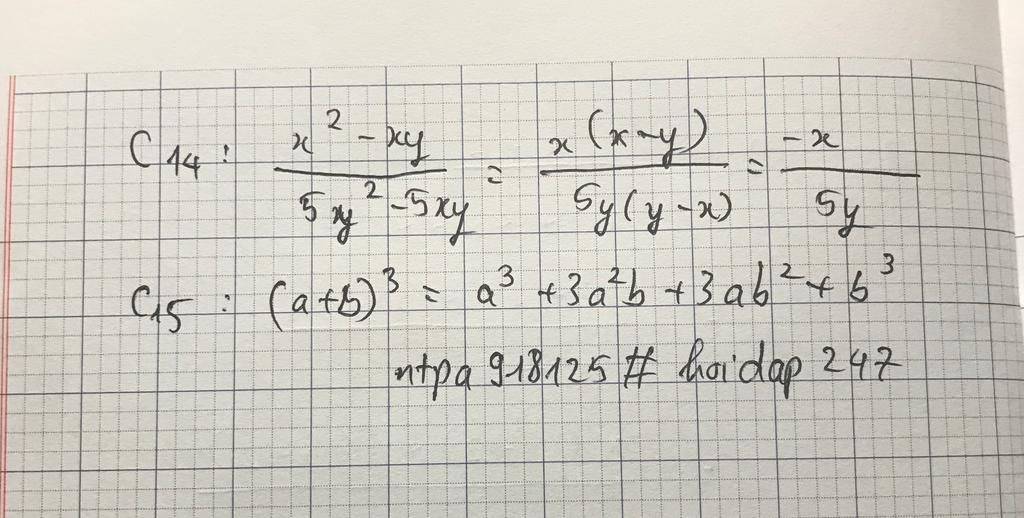 C14: \frac{x^2 - xy}{5xy^2 - 5xy} = \frac{x(x-y)}{5y(y-x)} = \frac{-x}{5y}
C15: (a+b)^3 = a^3 + 3a^2b + 3ab^2 + b^3
ntpa 918125 # hoidap 247